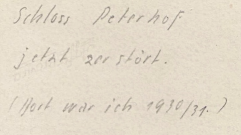 Schloss Peterhof
jetzt zerstört.
(Dort war ich 1930/31.)